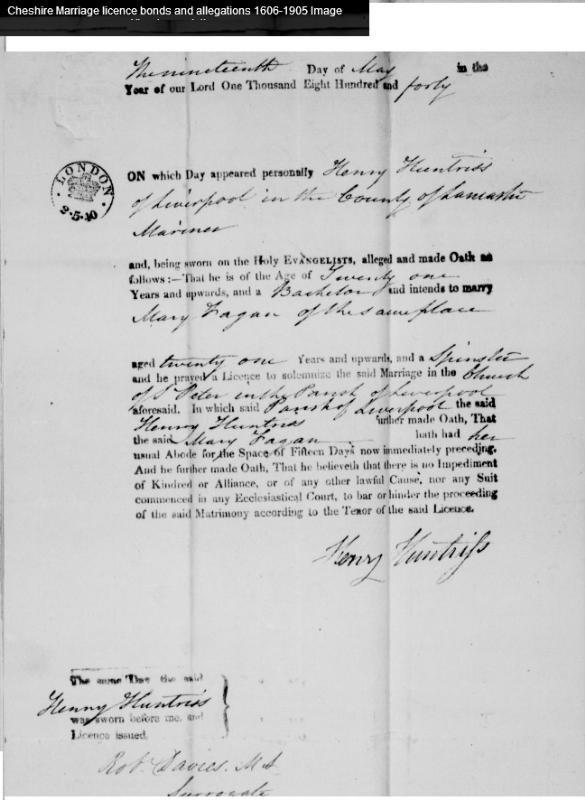 Cheshire Marriage licence bonds and allegations 1606-1905 Image
The nineteenth Day of May in the
Year of our Lord One Thousand Eight Hundred and forty
LONDON
2.5.40
ON which Day appeared personally Henry Huntriss
of Liverpool in the County of Lancaster
Mariner
and, being sworn on the Holy EVANGELISTS, alleged and made Oath as
follows:—That he is of the Age of Twenty one
Years and upwards, and a Bachelor and intends to marry
Mary Fagan of the same place
aged twenty one Years and upwards, and a Spinster
and he prayed a Licence to solemnize the said Marriage in the Church
of St Peter in the Parish of Liverpool
aforesaid. In which said Parish of Liverpool the said
Henry Huntriss further made Oath, That
the said Mary Fagan hath had her
usual Abode for the Space of Fifteen Days now immediately preceding.
And he further made Oath, That he believeth that there is no Impediment
of Kindred or Alliance, or of any other lawful Cause, nor any Suit
commenced in any Ecclesiastical Court, to bar or hinder the proceeding
of the said Matrimony according to the Tenor of the said Licence.
Henry Huntriss
The same Day the said
Henry Huntriss
was sworn before me, and
Licence issued.
Robt Davies. MA
Surrogate